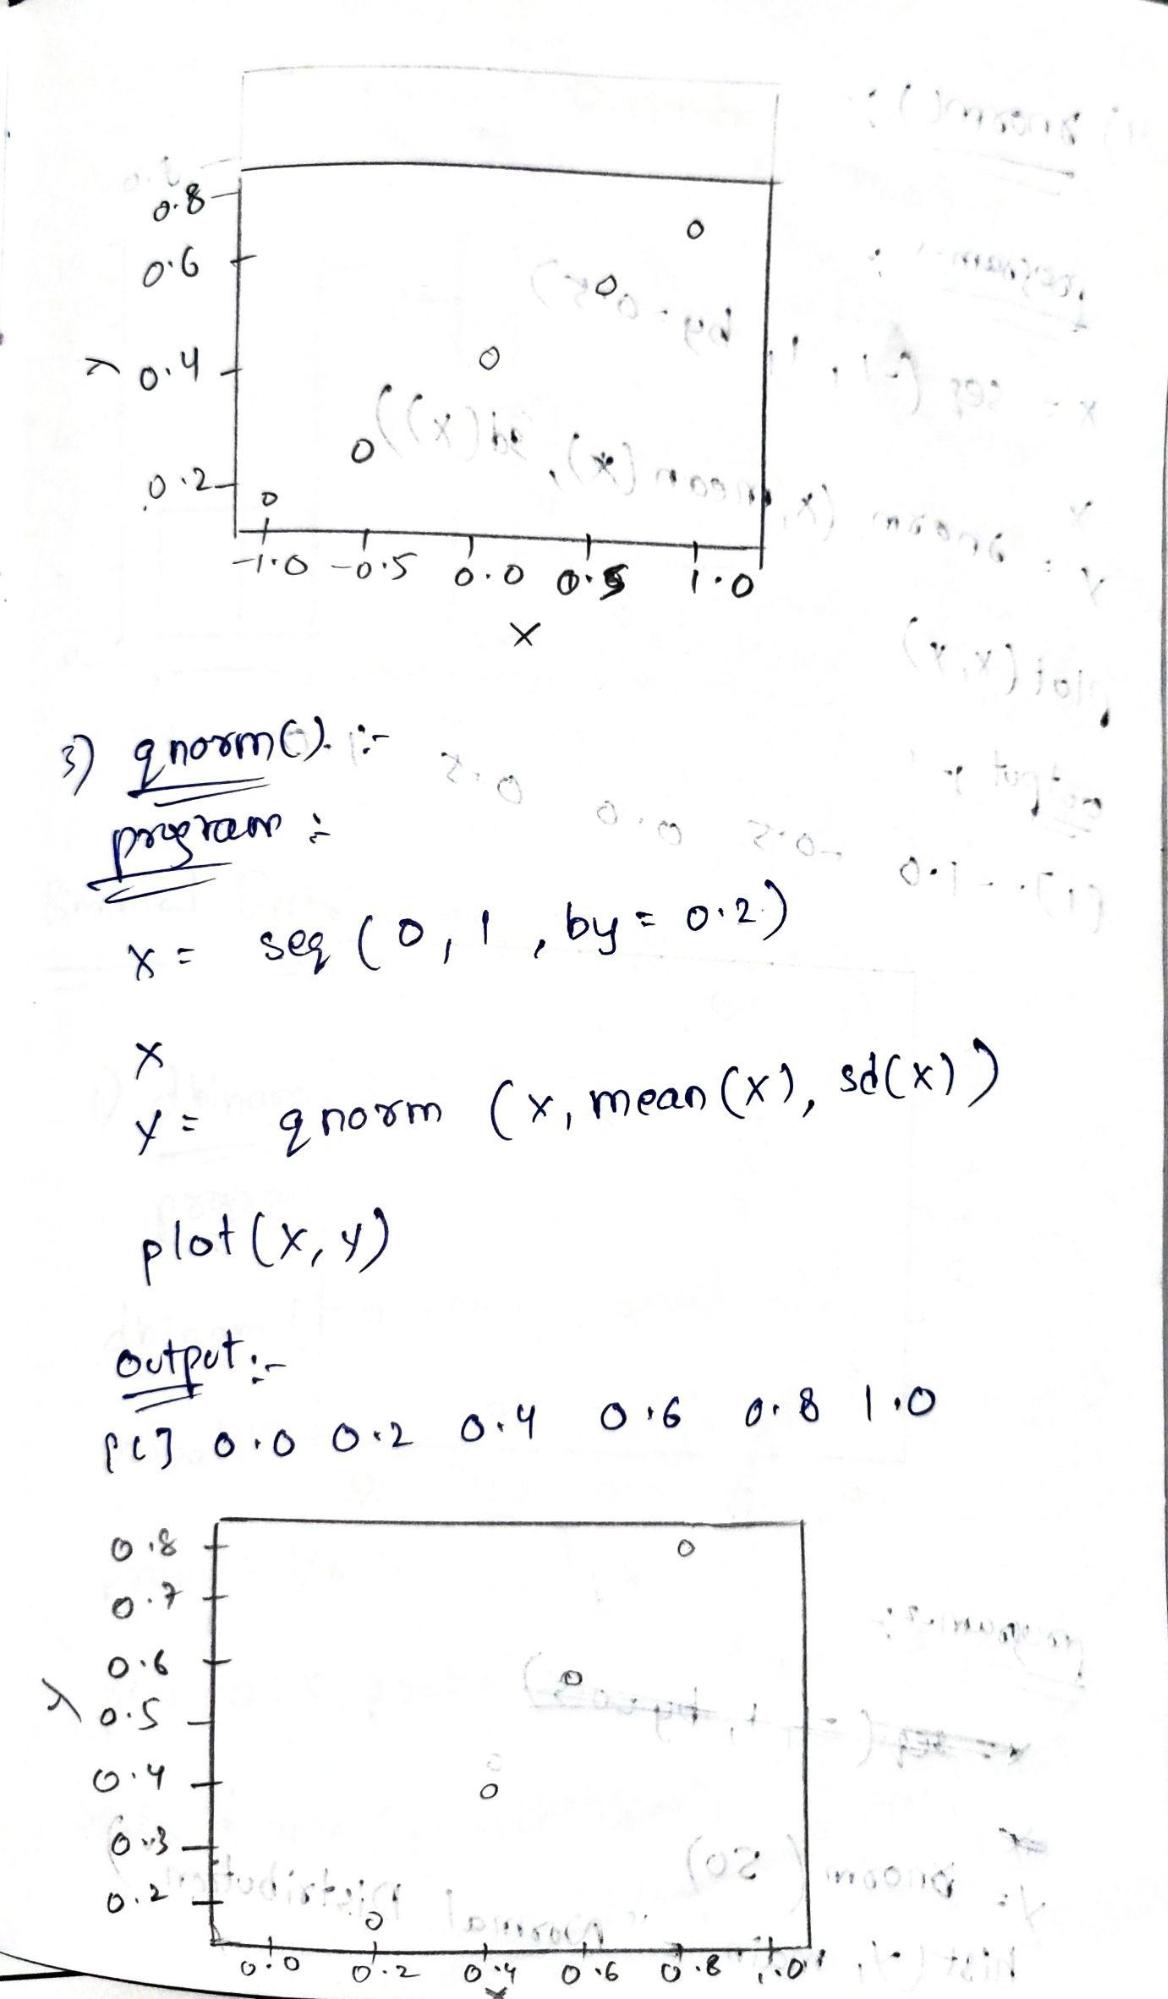 0.8
0.6
y 0.4
0.2
-1.0 -0.5 0.0 0.5 1.0
x
3) qnorm() :-
program :
x = seq (0, 1, by = 0.2)
x
y = qnorm (x, mean(x), sd(x))
plot(x, y)
output :-
[1] 0.0 0.2 0.4 0.6 0.8 1.0
0.8
0.7
0.6
y 0.5
0.4
0.3
0.2
0.0 0.2 0.4 0.6 0.8 1.0
x